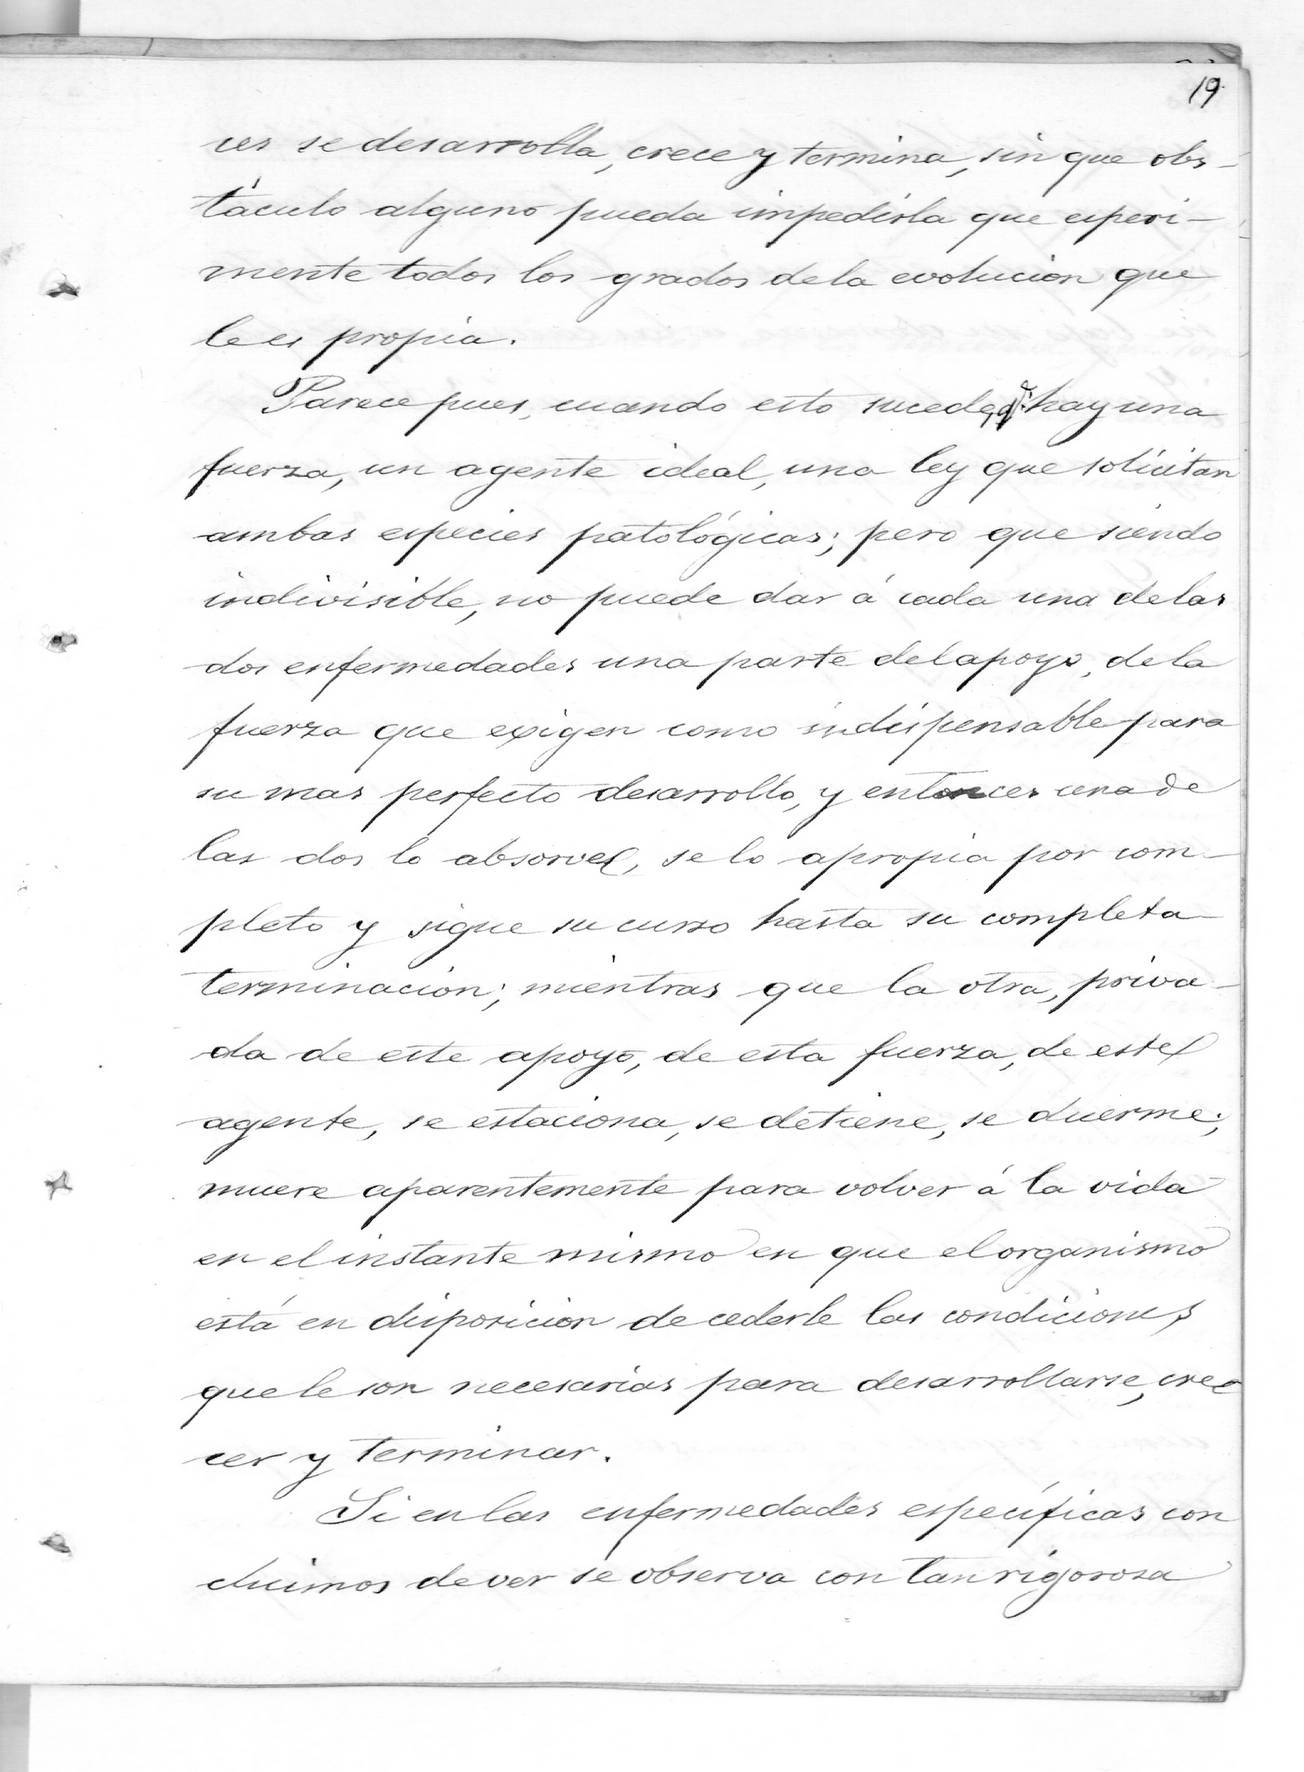 19
ces se desarrolla, crece y termina, sin que obs-
táculo alguno pueda impedirla que esperi-
mente todos los grados de la evolucion que
le es propia.
Parece pues, cuando esto sucede, q.e hay una
fuerza, un agente ideal, una ley que solicitan
ambas especies patológicas; pero que siendo
indivisible, no puede dar á cada una de las
dos enfermedades una parte del apoyo, de la
fuerza que exigen como indispensable para
su mas perfecto desarrollo, y entonces una de
las dos lo absorve, se lo apropia por com-
pleto y sigue su curso hasta su completa
terminacion; mientras que la otra, priva-
da de este apoyo, de esta fuerza, de este
agente, se estaciona, se detiene, se duerme;
muere aparentemente para volver á la vida
en el instante mismo en que el organismo
está en disposicion de cederle las condiciones
que le son necesarias para desarrollarse, cre-
cer y terminar.
Si en las enfermedades específicas con
cluimos de ver se observa con tan rigorosa